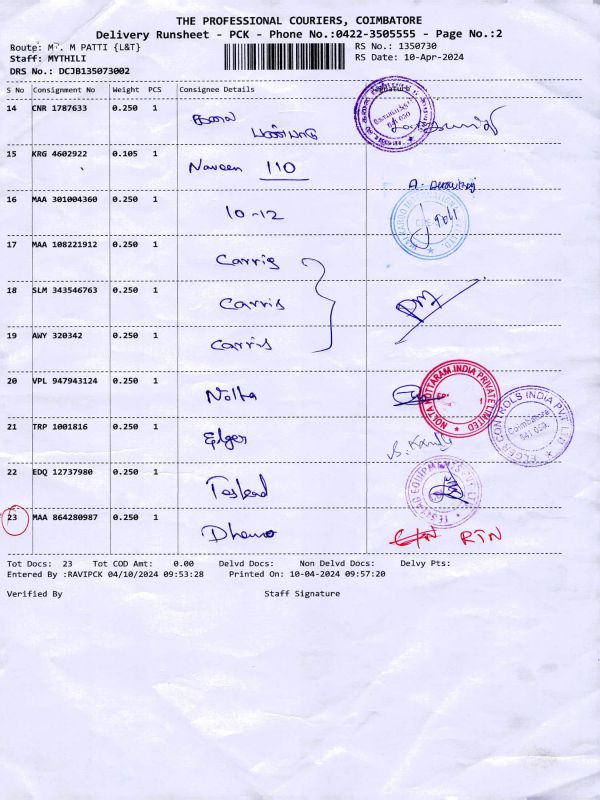 THE PROFESSIONAL COURIERS, COIMBATORE
Delivery Runsheet - PCK - Phone No.:0422-3505555 - Page No.:2
Route: M. M PATTI {L&T}
RS No.: 1350730
Staff: MYTHILI
RS Date: 10-Apr-2024
DRS No.: DCJB135073002
S No Consignment No Weight PCS Consignee Details
14 CNR 1787633 0.250 1
15 KRG 4602922 0.105 1 Naveen 110
16 MAA 301004360 0.250 1 10-12
17 MAA 108221912 0.250 1 Carris
18 SLM 343546763 0.250 1 Carris
19 AWY 320342 0.250 1 Carris
20 VPL 947943124 0.250 1 Nolta
NOLTA MUTTARAM INDIA PRIVATE LIMITED
21 TRP 1001816 0.250 1 Elger
ELGER CONTROLS INDIA PVT LTD
Coimbatore
641 050
22 EDQ 12737980 0.250 1
23 MAA 864280987 0.250 1 RTN
Tot Docs: 23 Tot COD Amt: 0.00 Delvd Docs: Non Delvd Docs: Delvy Pts:
Entered By :RAVIPCK 04/10/2024 09:53:28 Printed On: 10-04-2024 09:57:20
Verified By Staff Signature